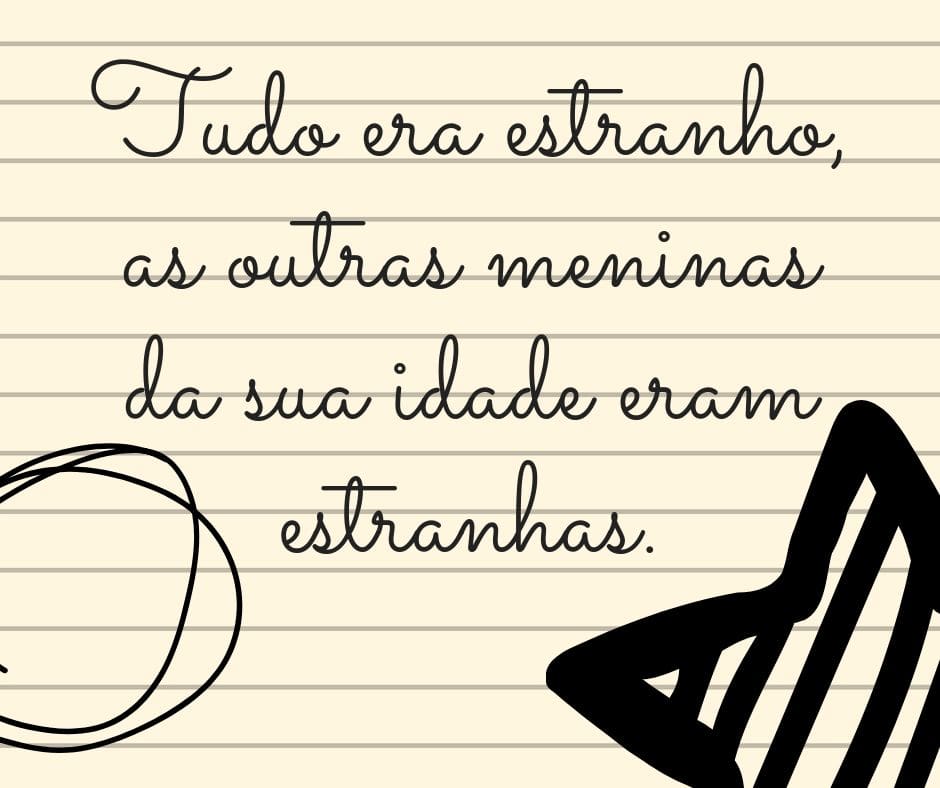 Tudo era estranho,
as outras meninas
da sua idade eram
estranhas.